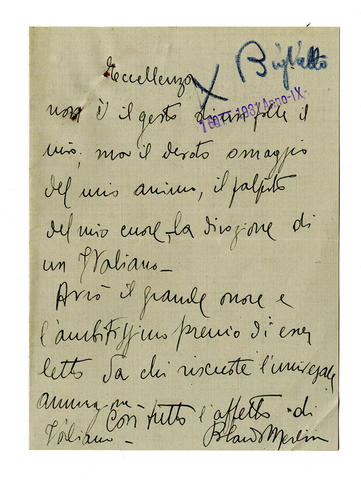 Eccellenza
X Biglietto
1 OTT. 1931 Anno IX
non è il gesto di un folle il
mio; ma il devoto omaggio
del mio animo, il palpito
del mio cuore, la divozione di
un Italiano -
Avrò il grande onore e
l'ambitissimo premio di esser
letto da chi riscuote l'universale
ammirazione -
Con tutto l'affetto di
Italiano -